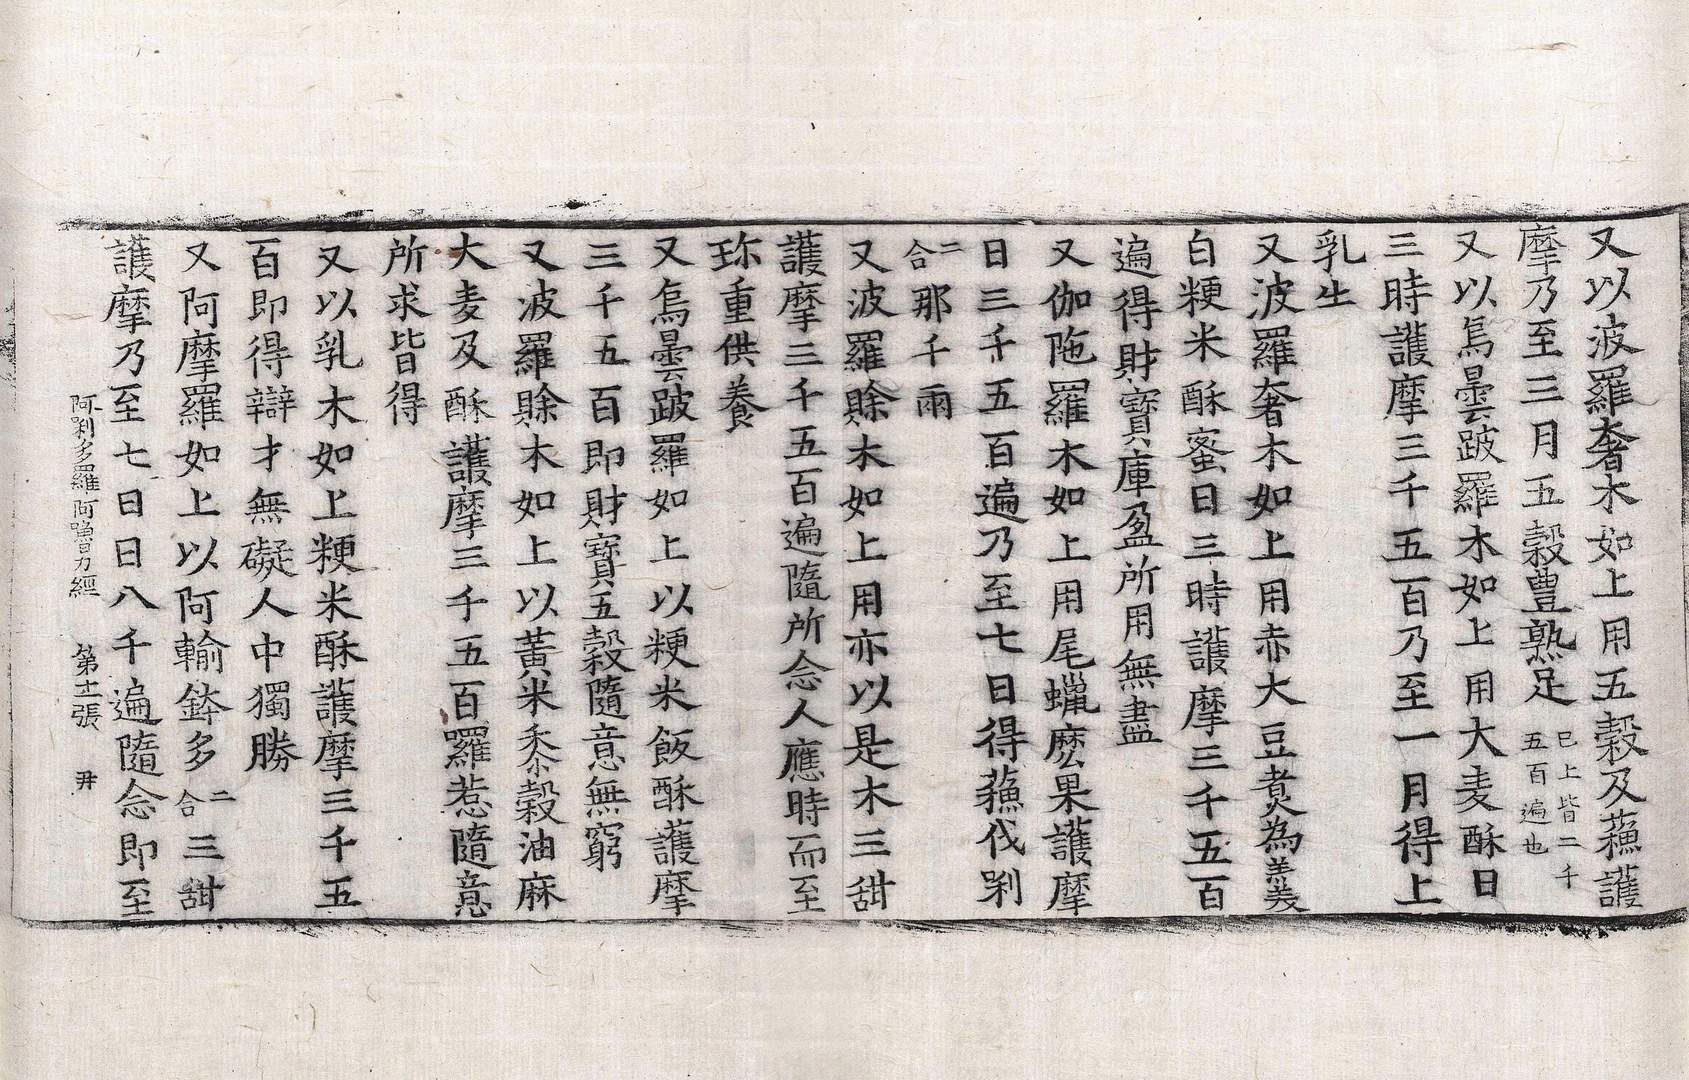 又以波羅奢木如上用五穀及蘓護
摩乃至三月五穀豊熟足已上皆二千五百遍也
又以烏曇跛羅木如上用大麦酥日
三時護摩三千五百乃至一月得上
乳生
又波羅奢木如上用赤大豆煮為羙
白粳米酥蜜日三時護摩三千五百
遍得財寶庫盈所用無盡
又伽陁羅木如上用尾蠟麼果護摩
日三千五百遍乃至七日得蘓伐剌
二合那千兩
又波羅賖木如上用亦以是木三甜
護摩三千五百遍隨所念人應時而至
珎重供養
又烏曇跛羅如上以粳米飯酥護摩
三千五百即財寶五穀隨意無窮
又波羅賖木如上以黃米黍穀油麻
大麦及酥護摩三千五百囉惹隨意
所求皆得
又以乳木如上粳米酥護摩三千五
百即得辯才無礙人中獨勝
又阿摩羅如上以阿輸鉢多二合三甜
護摩乃至七日日八千遍隨念即至
阿唎多羅阿嚕力經 第十一張 尹